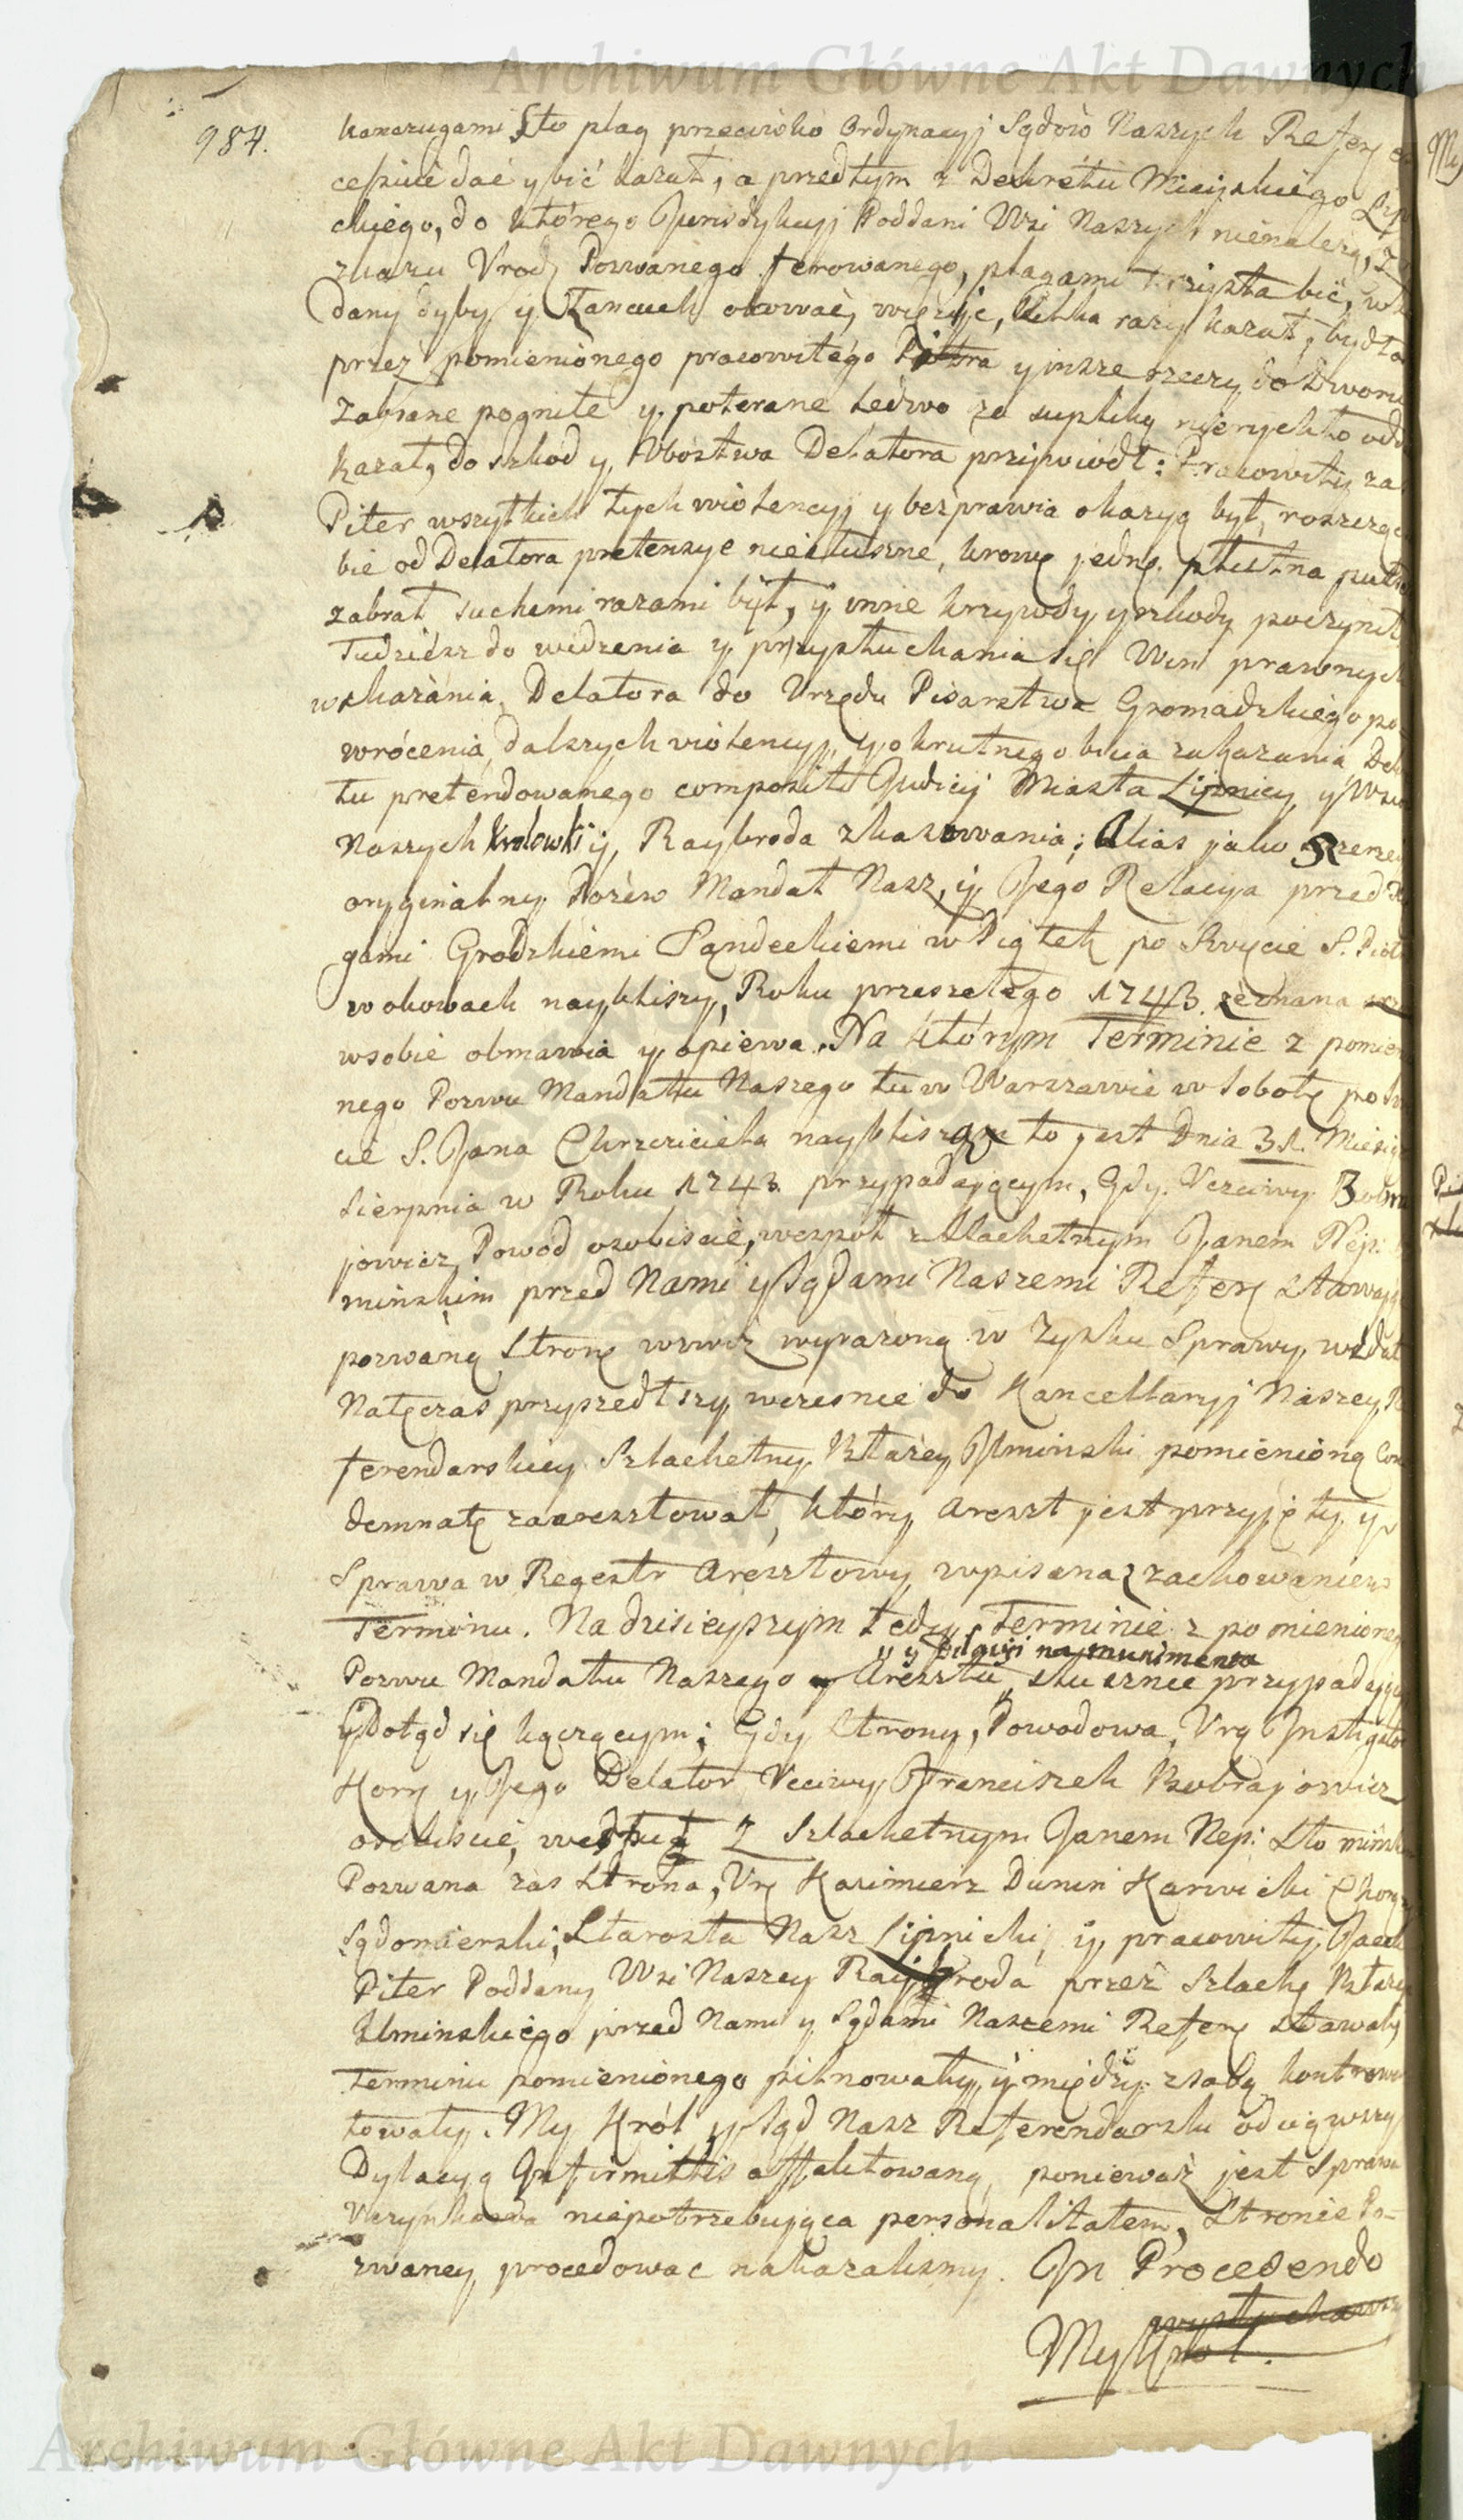 Archiwum Główne Akt Dawnych
984.
kanczugami sto plag przeciwko Ordynacyj Sądów Naszych Referen
cessiue dać y bić kazał, a przedtym z Dekretu Mieyskiego Lip
ckiego, do którego Jurisdykcyj Poddani Wsi Naszych nienalezą, z
zkazu Urodz Pozwanego ferowanego, plagami trzysta bić, w
dany dyby y Łancuch okować, więzić, kilka razy kazał, bydło
przez pomienionego pracowitego Pitra y insze rzeczy do Dworu
zabrane pogniłe y poterane ledwo za supliką nierychło odd
kazał, do szkod y Ubostwa Delatora przywiodł: Pracowity zas
Piter wszytkich tych wiolencyj y bezprawia okazyą był, roszcząc
bie od Delatora pretensye niesłuszne, krowę jedną płutna puł
zabrał suchemi razami był, y inne krzywdy y szkody poczynił
Tudziesz do widzenia y przysłuchania się Win prawnych
wskazania, Delatora do Urzędu Pisarstwa Gromadzkiego po-
wrócenia, dalszych violencyj, y okrutnego bicia zakazania, Dek
tu pretendowanego compositi Judicij Miasta Lipnicy, y Wsiow
Naszych Krolowki y Raybroda zkasowania; Alias jako szerzey
oryginalny Pozew Mandat Nasz, y Jego Relacya przed
gami Grodzkiemi Sandeckiemi w Piątek po Swięcie S. Piotr
w okowach naybliszy, Roku przeszełego 1743. zeznana
w sobie obmawia y opiewa. Na którym Terminie z pomien
nego Pozwu Mandatu Naszego tu w Warszawie w Sobotę po Swi
cie S. Jana Chrzciciela naybliszą to jest Dnia 31. Miesiąca
Sierpnia w Roku 1743. przypadającym, Gdy Ucziwy
jowicz Powod osobiscie, wespoł z Szlachetnym Janem Nep:
minskim przed Nami y Sądami Naszemi Referen stawając
pozwaną Stronę wzwiż wyrażoną w Zysku Sprawy wzdał
Natęczas przyszedłszy wczesnie do Kancellaryj Naszey Re
ferendarskiey Szlachetny Błażey Ulminski pomienioną Con
demnatę zaaresztował, który Areszt jest przyjęty, y
Sprawa w Regestr Aresztowy wpisana z zachowaniem
Terminu. Na dzisieyszym tedy Terminie z pomienionego
y y Dylacyi na munimenta
Pozwu Mandatu Naszego y Aresztu, słusznie przypadający
y Dotąd się kączącym; Gdy Strony, Powodowa, Urg Instigator
Korą y Jego Delator, Ucciwy Franciszek Bobrajowicz
osobiscie, według z Szlachetnym Janem Nep: Słominsk
Pozwana zas Strona, Urg Kazimierz Dunin Karwicki Chorąż
Sądomierski, Starosta Nasz Lipnicki, y pracowity Jacek
Piter Poddany Wsi Naszey Raybroda przez Szlach Błażeja
Ulminskiego przed Nami y Sądami Naszemi Referen stawały
Terminu pomienionego pilnowały, y między z sobą kontrower
towały. My Krol y Sąd Nasz Referendarski odciąwszy
Dylacyą Infirmitatis affektowaną, poniewaz jest Sprawa
Uczynkowa niepotrzebująca personalitatem, Stronie Po-
zwaney, procedowac nakazalismy. In Procedendo
wysłuchawszy
My Krol.
Archiwum Główne Akt Dawnych